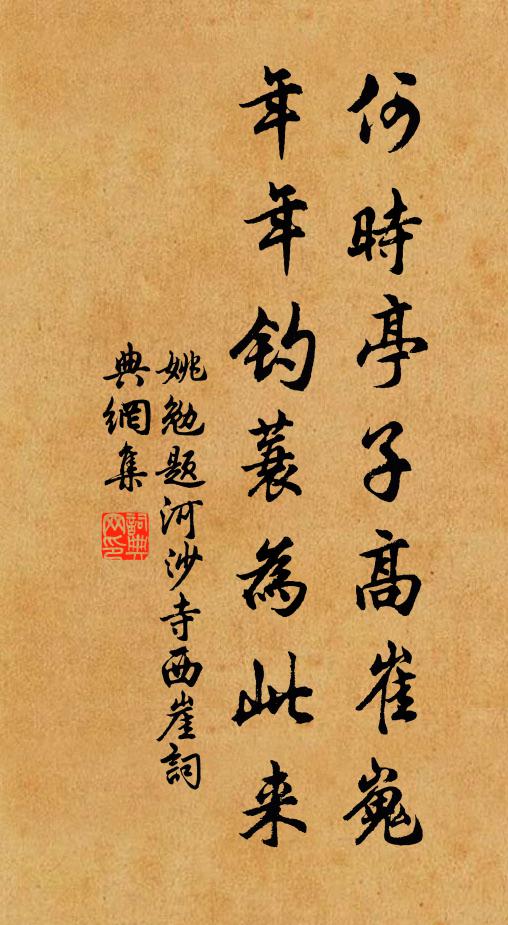 何時亭子高崔嵬
年年釣蓑為此来
姚勉题河沙寺西崖詞
典網集
詞典
网印